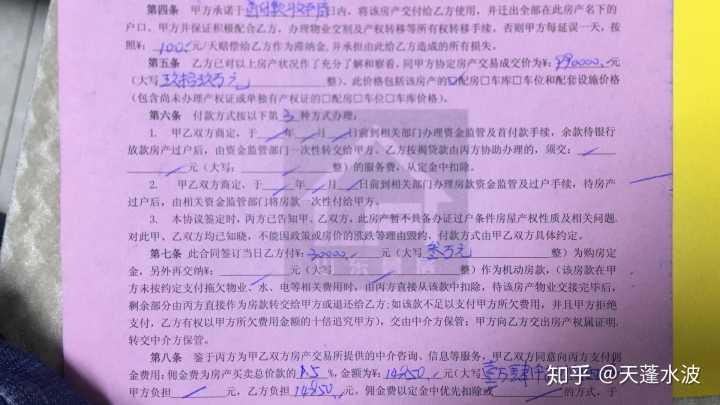 第四条 甲方承诺于首付款付清后日内，将该房产交付给乙方使用，并迁出全部在此房产名下的
户口。甲方并保证积极配合乙方，办理物业交割及产权转移等所有权转移手续。否则甲方每延误一天，按
照¥: 100 元/天赔偿给乙方作为滞纳金,并承担由此给乙方造成的所有损失。
第五条 乙方已对以上房产状况作了充分了解和察看。同甲方协定房产交易成交价为¥: 990000 元
（大写 玖拾玖万元 整）。此价格包括该房产的☑配房□车库□车位和配套设施价格
（包含尚未办理产权证或单独有产权证的□配房□车位□车库价格）。
第六条 付款方式按以下第 3 种方式办理：
1. 甲乙双方商定，于 年 月 日前到相关部门办理资金监管及首付款手续，余款待银行
放款房产过户后，由资金监管部门一次性转交给甲方。乙方按揭贷款由丙方协助办理的，须交：
元（大写： 整）的服务费，从定金中扣除。
2. 甲乙双方商定，于 年 月 日前到相关部门办理房款资金监管及过户手续，待房产
过户后，由相关资金监管部门将房款一次性付给甲方。
3. 本协议签定时，丙方已告知甲、乙双方，此房产暂不具备办证过户条件房屋产权性质及相关问题.
对此甲、乙双方均已知晓，不能因政策或房价的涨跌等理由毁约，付款方式由甲乙双方具体约定。
第七条 此合同签订当日乙方付¥: 30000 元（大写 叁万元 整）为购房定
金，另外再交纳¥: 元（大写 整）作为机动房款,（该房款在甲
方未按约定支付拖欠物业、水、电等相关费用时，由丙方直接从该款中扣除，待该房产物业交接完毕后，
剩余部分由丙方直接作为房款转交给甲方或退还给乙方;如该款不足以支付甲方所欠费用，并且甲方拒绝
支付，乙方有权以甲方所欠费用金额的十倍追究甲方），交由中介方保管；甲方向乙方交出房产权属证明.
转交中介方保管。
第八条 鉴于丙方为甲乙双方房产交易所提供的中介咨询、信息等服务，甲乙双方同意向丙方支付佣
金费用:佣金费为房产买卖总价款的 1.5 %,金额为¥: 14850 元（大写 壹万肆仟
甲方负担 元，乙方负担 14850 元，佣金费以定金中优先扣除或 的方式，于
知乎 @天蓬水波